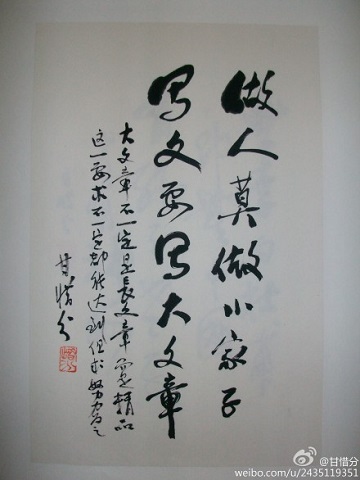 做人莫做小家子
写文要写大文章
大文章不一定是長文章是精品
这一要求不一定都能达到但求努力为之
甘惜分
@甘惜分
weibo.com/u/2435119351